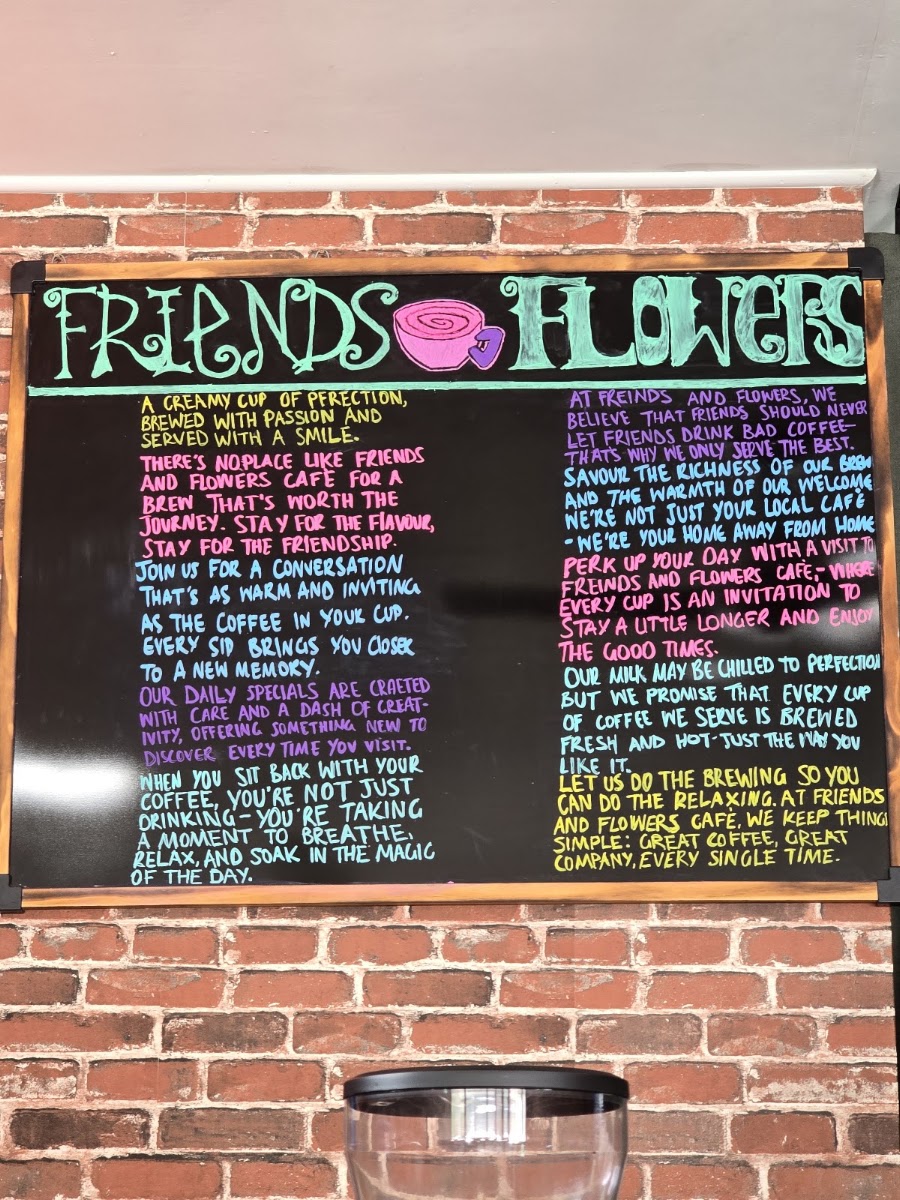 FRIENDS FLOWERS
A CREAMY CUP OF PERECTION,
BREWED WITH PASSION AND
SERVED WITH A SMILE.
THERE'S NO PLACE LIKE FRIENDS
AND FLOWERS CAFE FOR A
BREW THAT'S WORTH THE
JOURNEY. STAY FOR THE FLAVOUR,
STAY FOR THE FRIENDSHIP.
JOIN US FOR A CONVERSATION
THAT'S AS WARM AND INVITING
AS THE COFFEE IN YOUR CUP.
EVERY SIP BRINGS YOU CLOSER
TO A NEW MEMORY.
OUR DAILY SPECIALS ARE CRAFTED
WITH CARE AND A DASH OF CREAT-
IVITY, OFFERING SOMETHING NEW TO
DISCOVER EVERY TIME YOU VISIT.
WHEN YOU SIT BACK WITH YOUR
COFFEE, YOU'RE NOT JUST
DRINKING - YOU'RE TAKING
A MOMENT TO BREATHE,
RELAX, AND SOAK IN THE MAGIC
OF THE DAY.
AT FREINDS AND FLOWERS, WE
BELIEVE THAT FRIENDS SHOULD NEVER
LET FRIENDS DRINK BAD COFFEE-
THAT'S WHY WE ONLY SERVE THE BEST.
SAVOUR THE RICHNESS OF OUR BREW
AND THE WARMTH OF OUR WELCOME
WE'RE NOT JUST YOUR LOCAL CAFE
- WE'RE YOUR HOME AWAY FROM HOME
PERK UP YOUR DAY WITH A VISIT TO
FREINDS AND FLOWERS CAFE,- WHERE
EVERY CUP IS AN INVITATION TO
STAY A LITTLE LONGER AND ENJOY
THE GOOD TIMES.
OUR MILK MAY BE CHILLED TO PERFECTION
BUT WE PROMISE THAT EVERY CUP
OF COFFEE WE SERVE IS BREWED
FRESH AND HOT-JUST THE WAY YOU
LIKE IT.
LET US DO THE BREWING SO YOU
CAN DO THE RELAXING. AT FRIENDS
AND FLOWERS CAFE, WE KEEP THINGS
SIMPLE: GREAT COFFEE, GREAT
COMPANY, EVERY SINGLE TIME.